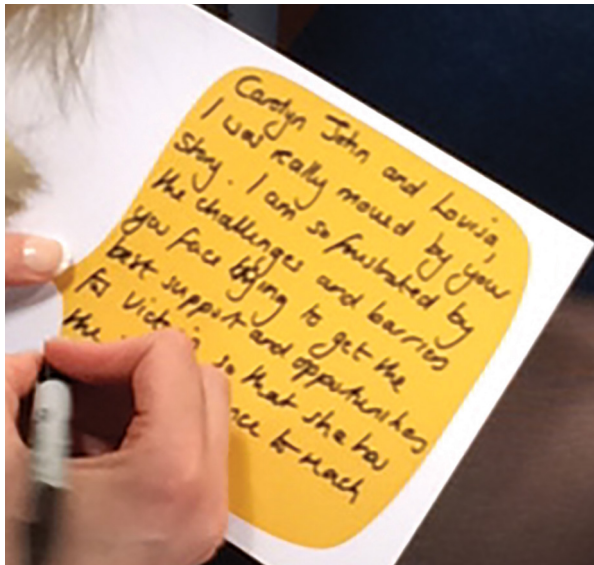 Carolyn John and Louisa,
I was really moved by your
story. I am so frustrated by
the challenges and barriers
you face trying to get the
best support and opportunities
for Victoria so that she has
the to reach